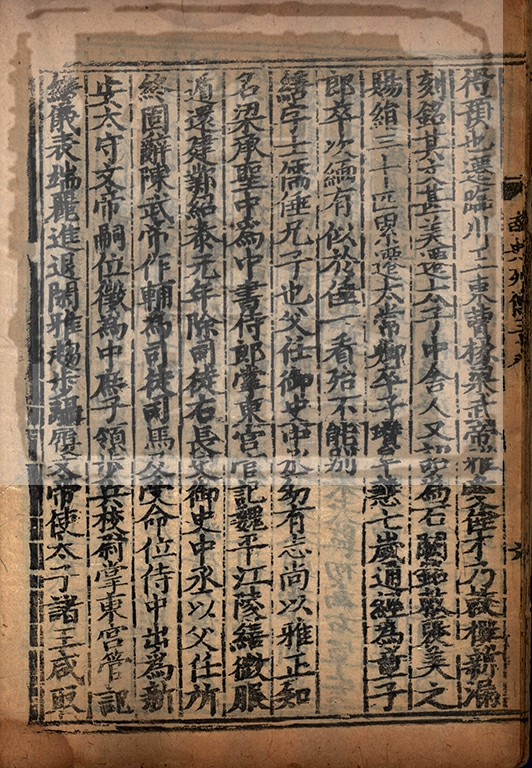 得預也遷臨川王東曹掾梁武帝雅愛倕才乃敕撰新漏
刻銘其文甚美遷太子中舍人又詔為石闕銘敕褒美之
賜絹三十疋累遷太常卿卒子瓚早慧七歲通經為童子
郎卒次緬有似於倕一看殆不能別
繕字士儒倕兄子也父任御史中丞幼有志尚以雅正知
名梁承聖中為中書侍郎掌東宮管記魏平江陵繕微服
遁還建鄴紹泰元年除司徒右長史御史中丞以父任所
終固辭陳武帝作輔為司徒司馬及受命位侍中出為新
安太守文帝嗣位徵為中庶子領步兵校尉掌東宮管記
繕儀表端麗進退閑雅趨步躡履文帝使太子諸王咸取